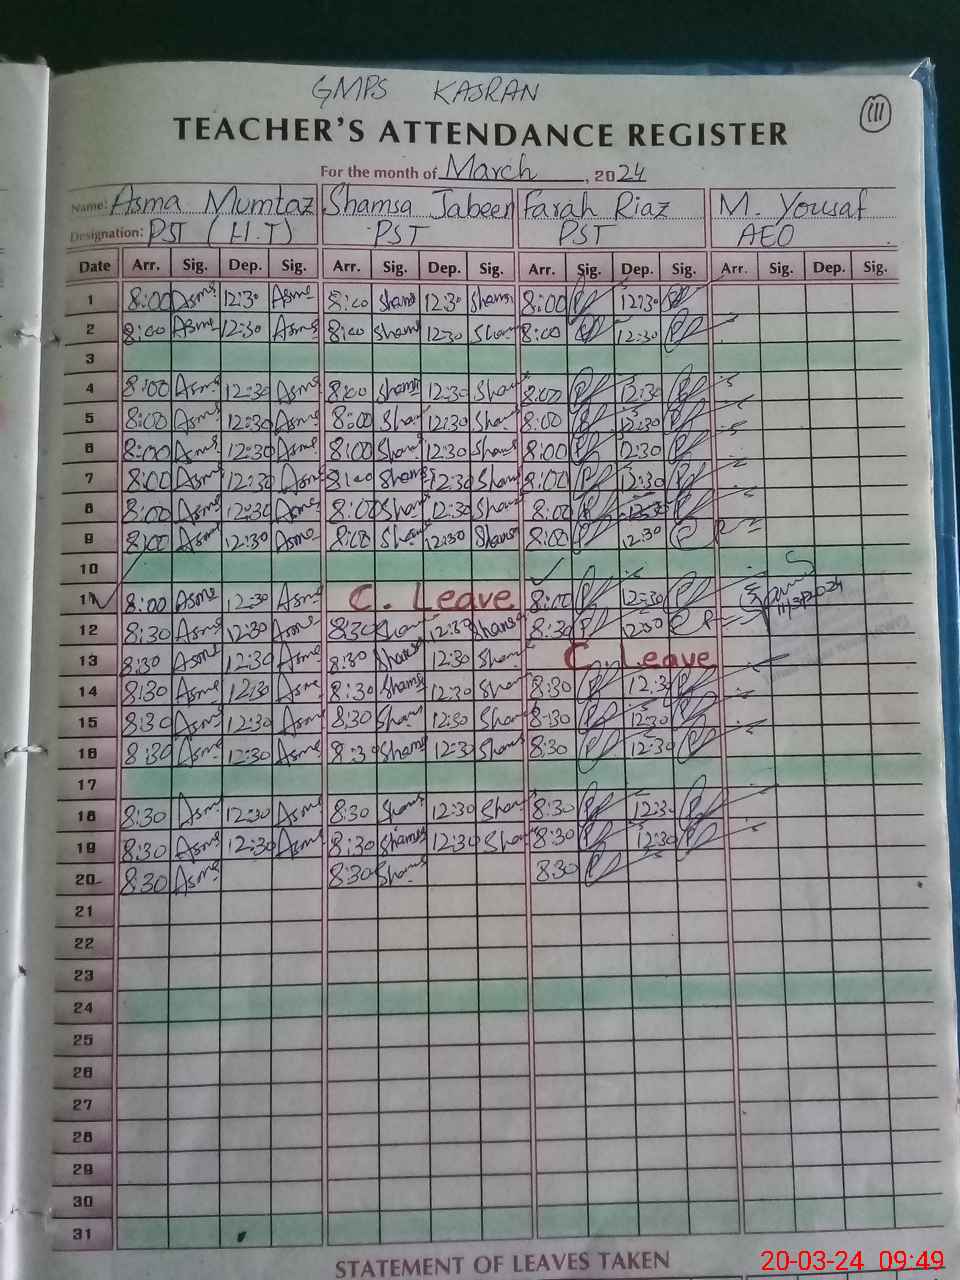 GMPS KAJRAN
111
TEACHER'S ATTENDANCE REGISTER
For the month of March, 2024
Name: Asma Mumtaz Shamsa Jabeen Farah Riaz M. Yousaf
Designation: PST (H.T) PST PST AEO
Date Arr. Sig. Dep. Sig. Arr. Sig. Dep. Sig. Arr. Sig. Dep. Sig. Arr. Sig. Dep. Sig.
1 8:00 Asma 12:30 Asma 8:00 Shams 12:30 Shams 8:00 12:30
2 8:00 Asma 12:30 Asma 8:00 Sham 12:30 Sham 8:00 12:30
3
4 8:00 Asma 12:30 Asma 8:00 Shams 12:30 Sham 8:00 12:30
5 8:00 Asma 12:30 Asma 8:00 Sham 12:30 Sha 8:00 12:30
6 8:00 Asma 12:30 Asma 8:00 Sham 12:30 Sham 8:00 12:30
7 8:00 Asma 12:30 Asma 8:00 Shams 12:30 Sham 8:00 12:30
8 8:00 Asma 12:30 Asma 8:00 Sham 12:30 Sham 8:00 12:30
9 8:00 Asma 12:30 Asma 8:00 Sham 12:30 Shams 8:00 12:30
10
11 8:00 Asma 12:30 Asma C. Leave 8:00 12:30 11/3/2024
12 8:30 Asma 12:30 Asma 8:30 Sham 12:30 Shamsa 8:30 12:30
13 8:30 Asma 12:30 Asma 8:30 Shamsa 12:30 Sham C. Leave
14 8:30 Asma 12:30 Asma 8:30 Shams 12:30 Sham 8:30 12:30
15 8:30 Asma 12:30 Asma 8:30 Sham 12:30 Sham 8:30 12:30
16 8:30 Asma 12:30 Asma 8:30 Shams 12:30 Sham 8:30 12:30
17
18 8:30 Asma 12:30 Asma 8:30 Shams 12:30 Sham 8:30 12:30
19 8:30 Asma 12:30 Asma 8:30 Shams 12:30 Sham 8:30 12:30
20 8:30 Asma 8:30 Shams 8:30
21
22
23
24
25
26
27
28
29
30
31
STATEMENT OF LEAVES TAKEN
20-03-24 09:49